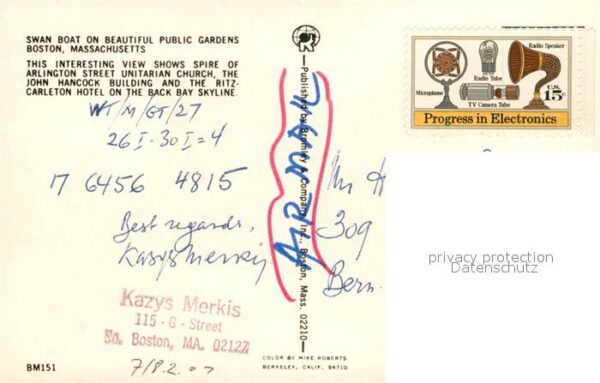 SWAN BOAT ON BEAUTIFUL PUBLIC GARDENS
BOSTON, MASSACHUSETTS
THIS INTERESTING VIEW SHOWS SPIRE OF
ARLINGTON STREET UNITARIAN CHURCH, THE
JOHN HANCOCK BUILDING AND THE RITZ-
CARLETON HOTEL ON THE BACK BAY SKYLINE.
WT/M/GT/27
26 I - 30 I = 4
17 6456 4815
Best regards,
Kazys Merkis
Kazys Merkis
115 - G - Street
So. Boston, MA. 02127
BM151
Published by Bromley & Company, Inc., Boston, Mass. 02210
AIR MAIL
COLOR BY MIKE ROBERTS
BERKELEY, CALIF. 94710
Radio Speaker
Radio Tube
Microphone
TV Camera Tube
U.S.
15c
Progress in Electronics
Mr H
309
Bern
privacy protection
Datenschutz